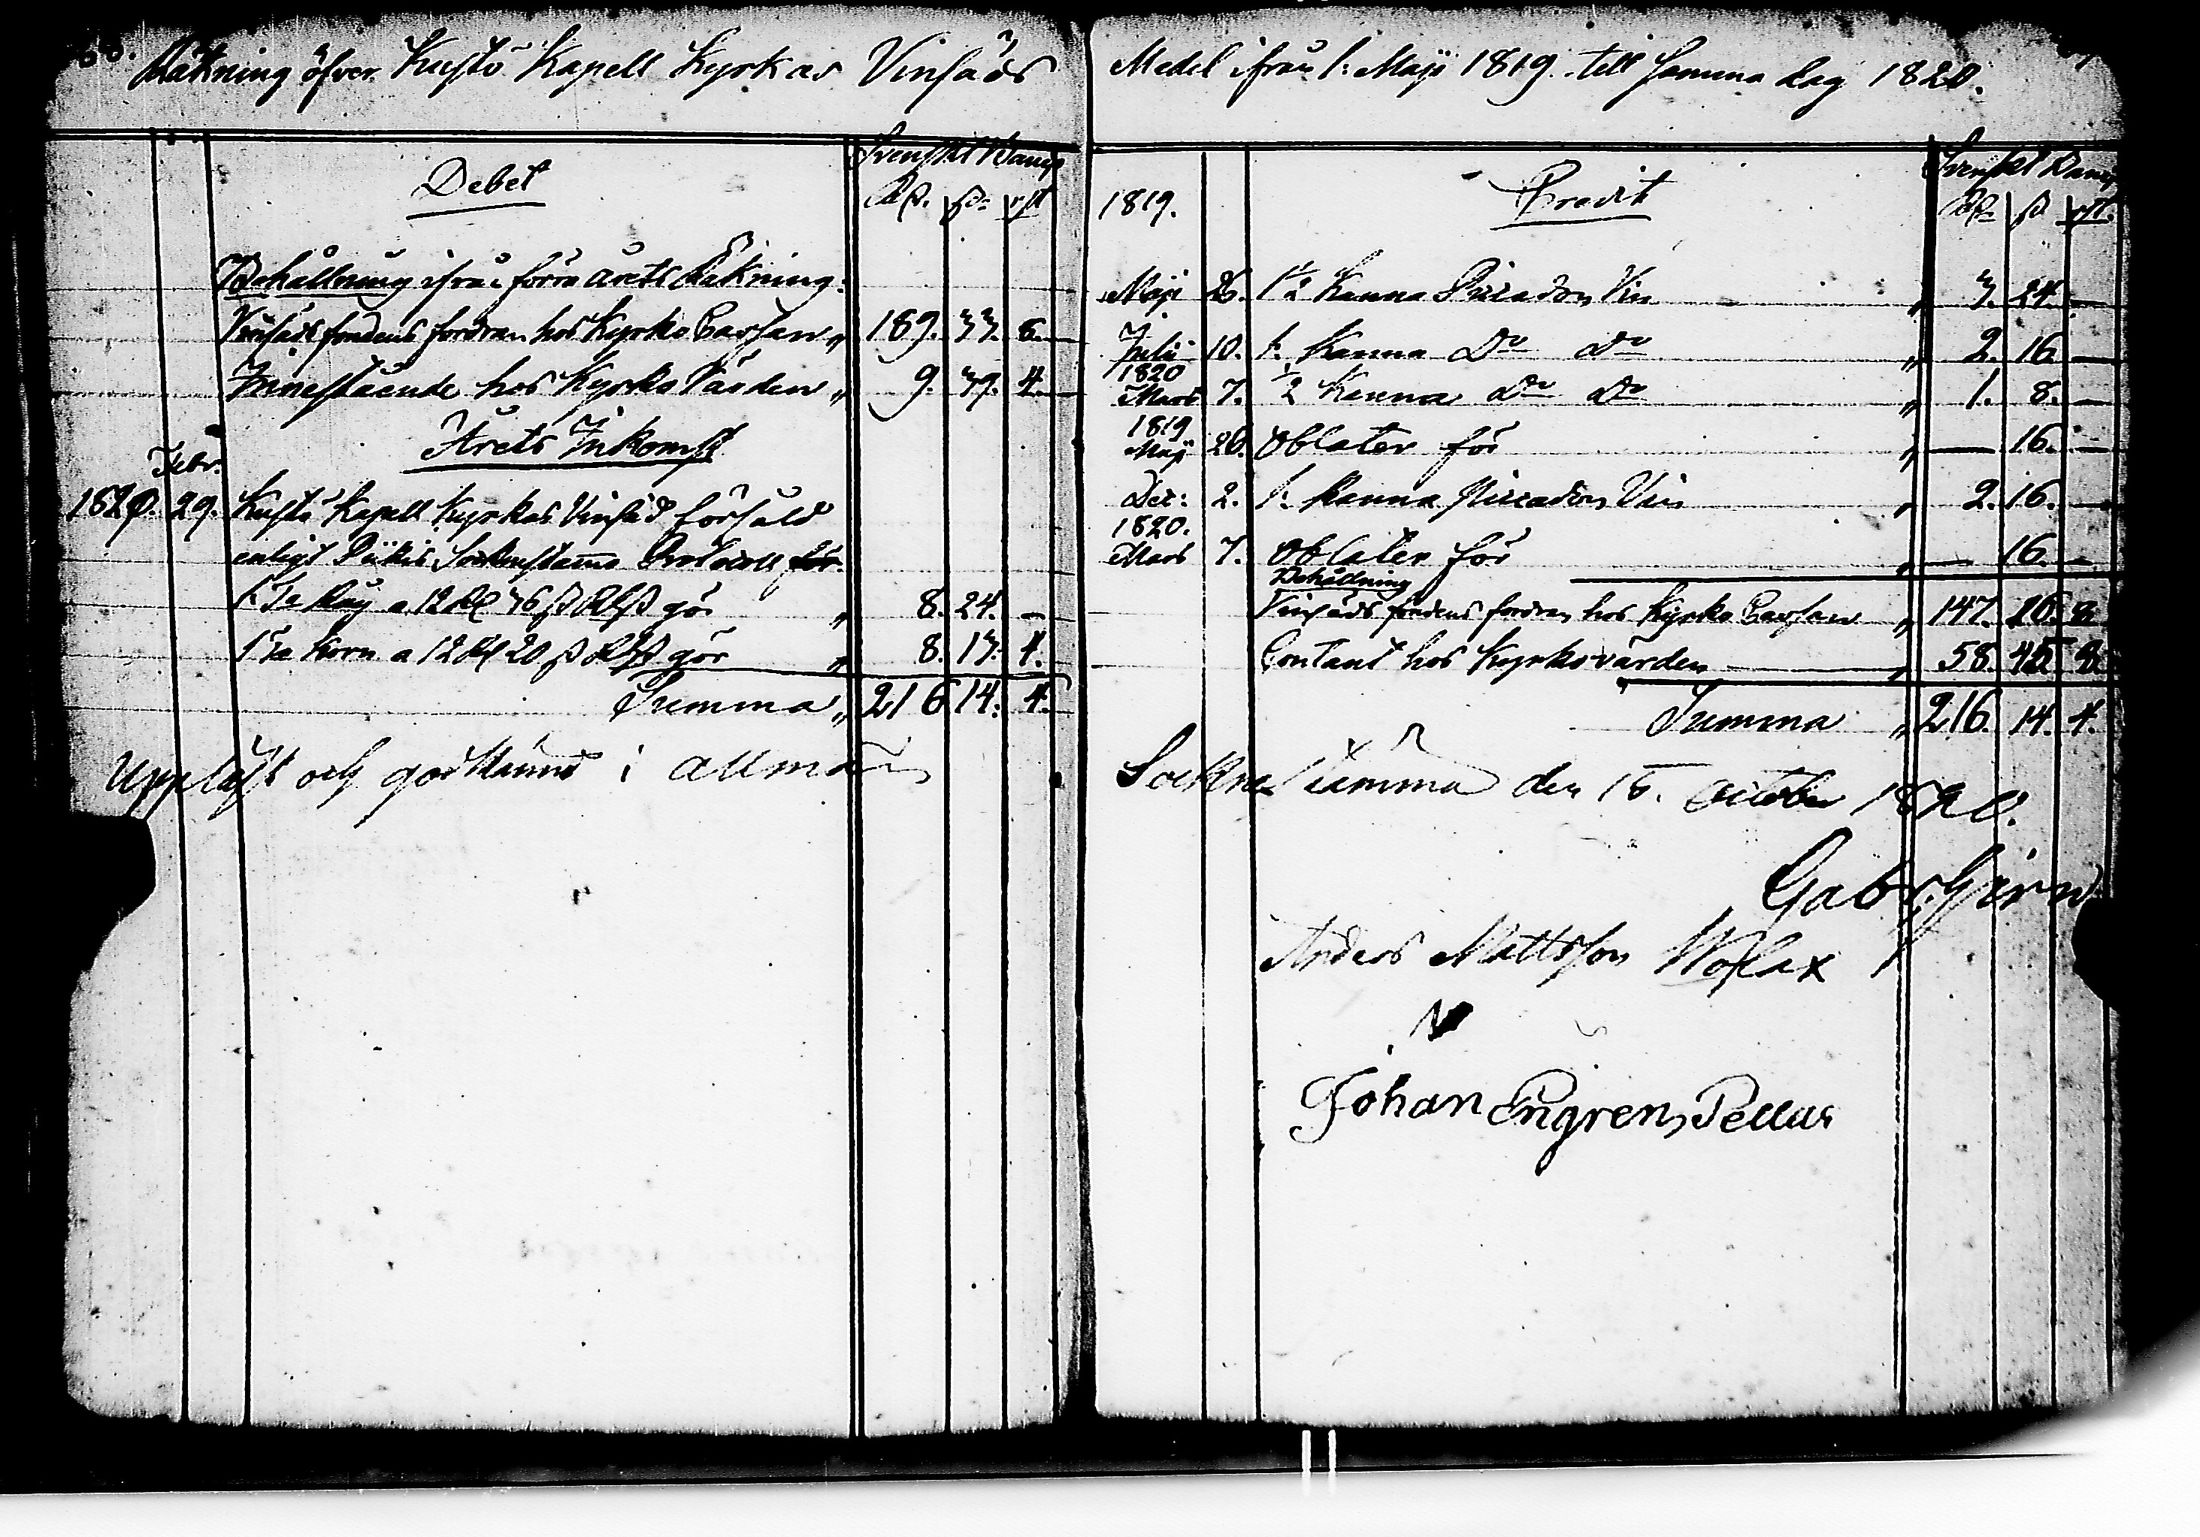 Räkning öfver Kustö Kapell Kyrkas Vinsäds
Debet
Svenskt Banco
Rd. ß. rst
Behållning ifrån förra årets Räkning:
Vinsäds fondens fordran hos Kyrko Cassan „ 189. 33. 8.
Innestående hos Kyrko Värden „ 9. 39. 4.
Årets Inkomst
Febr.
1820. 29. Kustö Kapell Kyrkas Vinsäd försåld
enligt Pikis Sockenstämmo Protocoll för
1 Ta Råg a 12 Rd 36 ß Rgß gör „ 8. 24. —
1 Ta Korn a 12 Rd 20 ß Rgß gör „ 8. 13. 4.
Summa „ 216 14. 4.
Uppläst och godkänd i allmän
Medel ifrån 1. Maji 1819. till samma dag 1820.
1819.
Credit
Svenskt Banco
Rd ß rst.
Maji 26. 1½ Kanna Piccadon Vin „ 3. 24. —
Julii 10. 1. Kanna Do do „ 2. 16 —
1820
Mars 7. ½ Kanna do do „ 1. 8. —
1819
Maji 26. Oblater för „ — 16. —
Dec: 2. 1. Kanna Piccadon Vin „ 2. 16. —
1820.
Mars 7. Oblater för „ — 16. —
Behållning
Vinsäds fondens fordran hos Kyrko Cassan „ 147. 16. 8
Contant hos Kyrkovärden „ 58. 45 8
Summa „ 216. 14. 4.
Sockne Stämma den 15. October 1820.
Gabr.
Anders Mattsson
Johan Engren Pellas